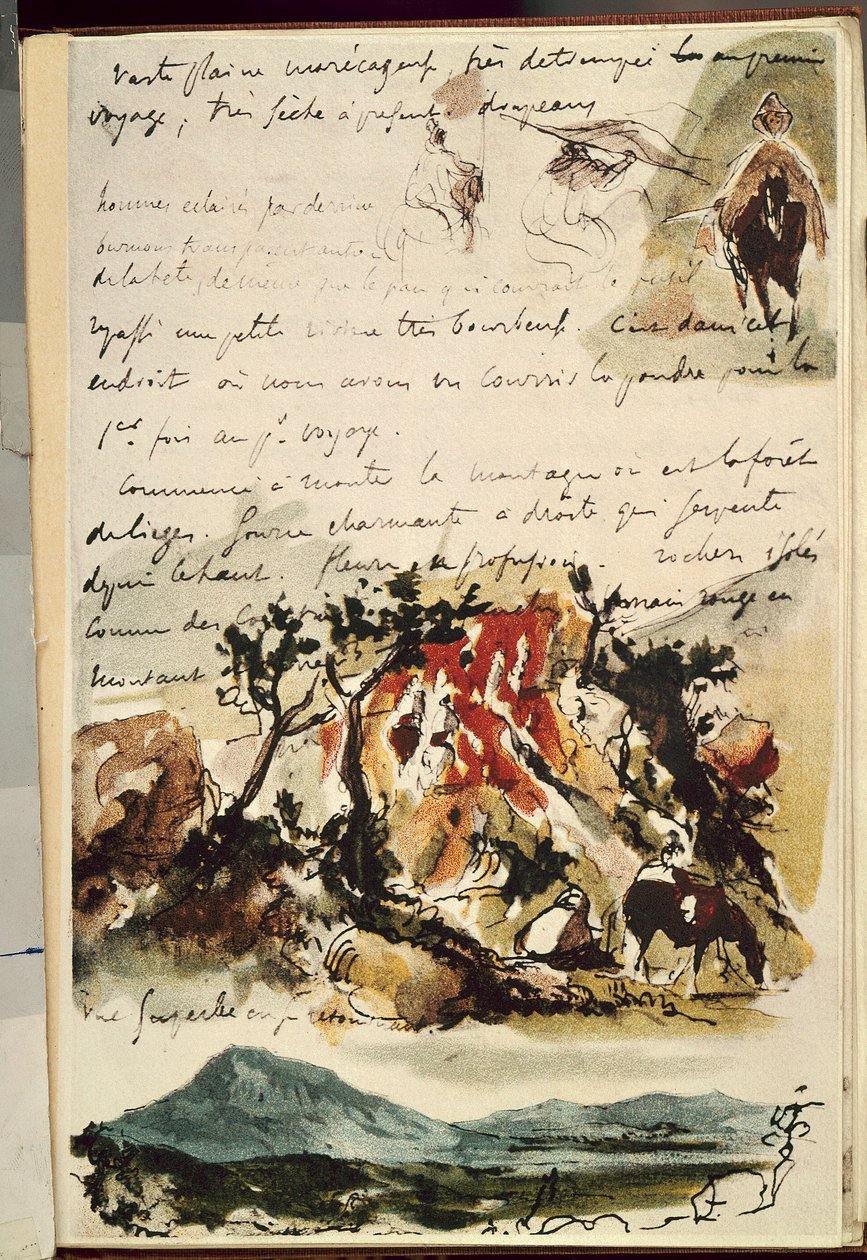 Vaste plaine marécageuse, très detrempée au premier
voyage ; très sèche à present. drapeaux
hommes eclairés par derriere
burnous transparent autour
de la tete, de même que le pan qui couvrait le fusil
repassé une petite riviere très bourbeuse. C'est dans cet
endroit où nous avons vu courir la poudre pour la
1ere fois au pr. voyage.
Commencé à monter la montagne où est la forêt
de lieges. Source charmante à droite qui serpente
depuis le haut. fleurs en profusion. rochers isolés
comme des terrain rouge en
montant
Vue superbe en se retournant.